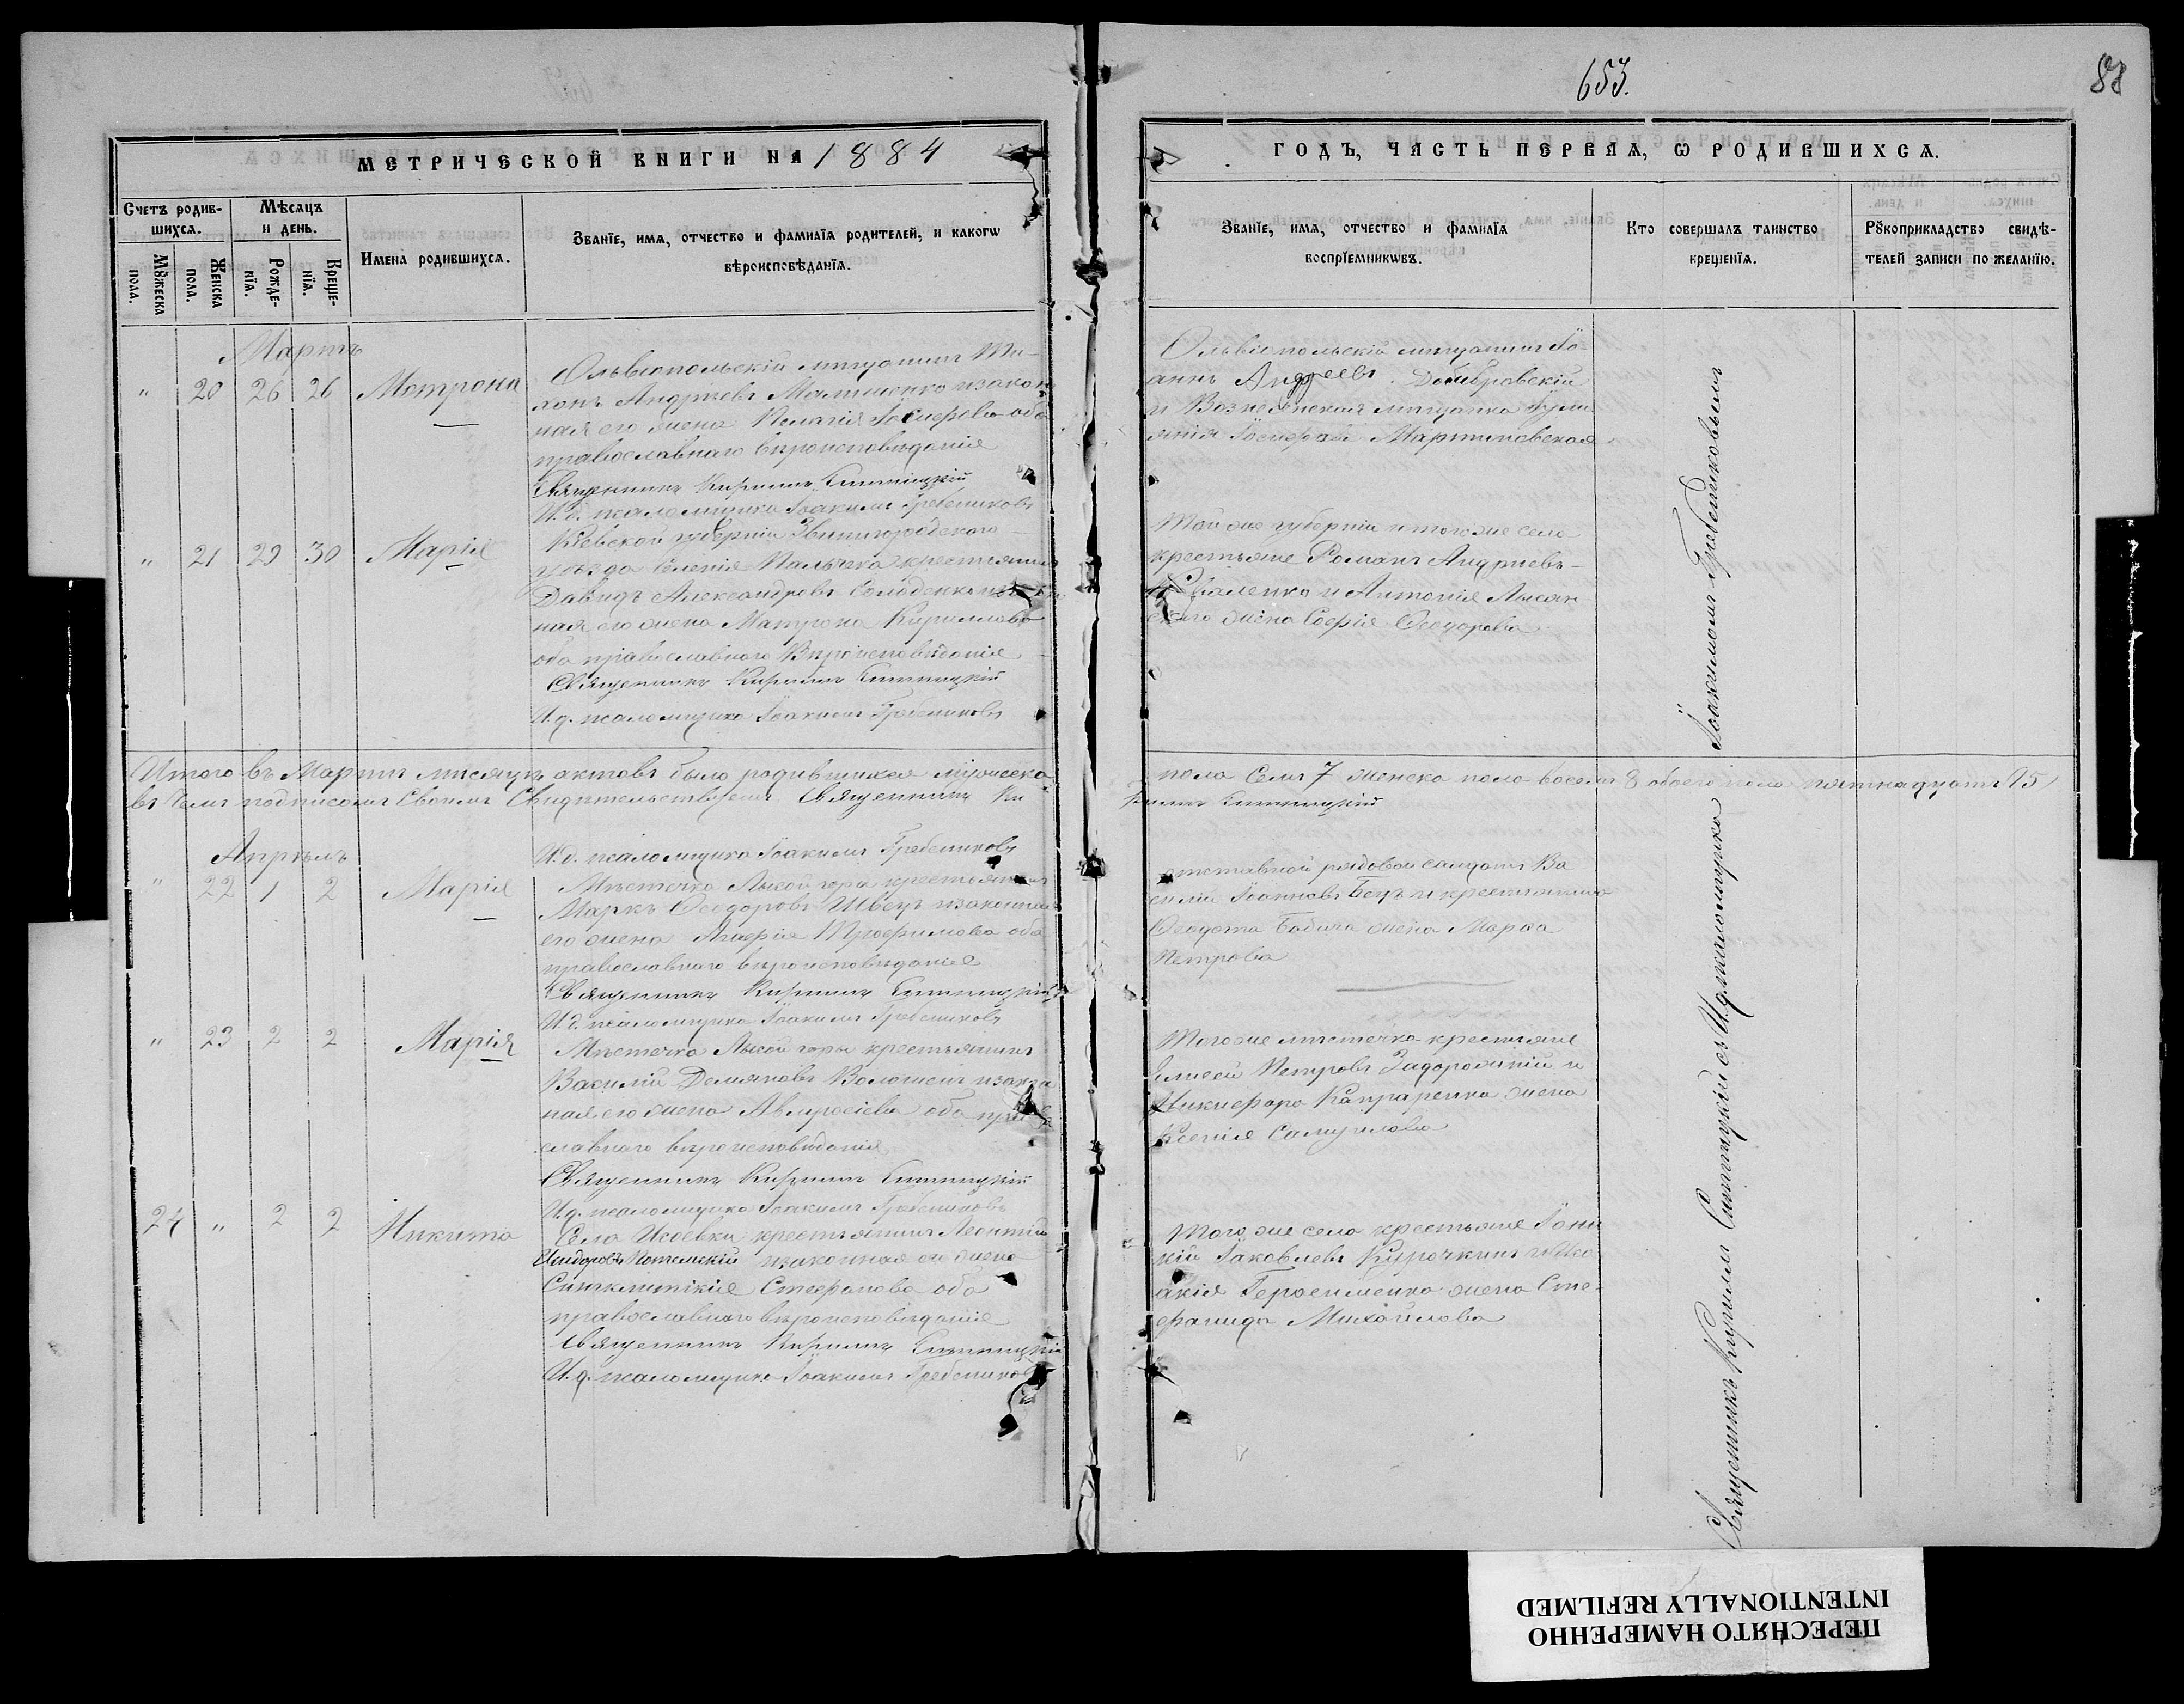 653.
88
МЕТРИЧЕСКОЙ КНИГИ НА 1884
ГОДЪ, ЧАСТЬ ПЕРВАЯ, Ѡ РОДИВШИХСѦ.
Счетъ родив-
шихсѧ.
Мѣсяцъ
и день.
Мꙋжеска
пола.
Женска
пола.
Рожде-
нїѧ.
Креще-
нїѧ.
Имена родившихсѧ.
Званїе, имѧ, отчество и фамилїѧ родителей, и какогѡ
вѣроисповѣданїѧ.
Званїе, имѧ, отчество и фамилїѧ
воспрїемникѡвъ.
Кто совершалъ таинство
крещенїѧ.
Рꙋкоприкладство свидѣ-
телей записи по желанїю.
Мартъ
" 20 26 26 Матрона
Ольвіопольскій мещанинъ Ти-
хонъ Андреевъ изакон
ная его жена Пелагія Іосифова оба
православнаго вѣроисповѣданія
Священникъ Кириллъ Ситницкій
И.д. псаломщика Іоакимъ Гребениковъ
Ольвіопольскій мещанинъ Іо-
аннъ Андреевъ Домбровскій
и Вознесенская мещанка Іули
анія Іосифова Мартиновская
" 21 29 30 Марія
Кіевской губерніи Звенигородскаго
уѣзда селенія крестьянинъ
Давидъ Александровъ
ная его жена Матрона Кириллова
оба православнаго Вѣроисповѣданія
Священникъ Кириллъ Ситницкій
И.д. псаломщика Іоакимъ Гребениковъ
Той же губерніи и того же села
крестьяне Романъ Андреевъ
и Антонія Лысян
скаго жена Софія Феодорова
Итого въ Мартѣ мѣсяцѣ актовъ было родившихся мужеска
пола семь 7 женска пола восемь 8 обоего пола пятнадцать 15
въ чемъ подписомъ своимъ Свидѣтельствуемъ Священникъ Ки
риллъ Ситницкій
И.д. псаломщика Іоакимъ Гребениковъ
Апрѣль
" 22 1 2 Марія
Мѣстечка Лысой горы крестьянинъ
Маркъ Феодоровъ Швецъ изаконная
его жена Агафія Трофимова оба
православнаго вѣроисповѣданія
Священникъ Кириллъ Ситницкій
И.д. псаломщика Іоакимъ Гребениковъ
отставной рядовой салдатъ Ва
силій Іоанновъ и крестьянина
Феодота Бабича жена Марѳа
Петрова
" 23 2 2 Марія
Мѣстечка Лысой горы крестьянинъ
Василій Демяновъ Волошенъ изакон
ная его жена оба право
славнаго вѣроисповѣданія
Священникъ Кириллъ Ситницкій
И.д. псаломщика Іоакимъ Гребениковъ
Того же мѣстечка крестьяне
Елисей Петровъ Задорожній и
Никифора жена
Ксенія Самуилова
24 " 2 2 Никита
Села крестьянинъ Леонтій
Исидоровъ изаконная его жена
Синклитикія Стефанова оба
православнаго вѣроисповѣданія
Священникъ Кириллъ Ситницкій
И.д. псаломщика Іоакимъ Гребениковъ
Того же села крестьяне Іони
кій Іаковлевъ Курочкинъ и
акія Герасименка жена Сте-
фанида Михайлова
Священникъ Кириллъ Ситницкій съ И.д. псаломщика Іоакимомъ Гребениковымъ
ПЕРЕСНЯТО НАМЕРЕННО
INTENTIONALLY REFILMED